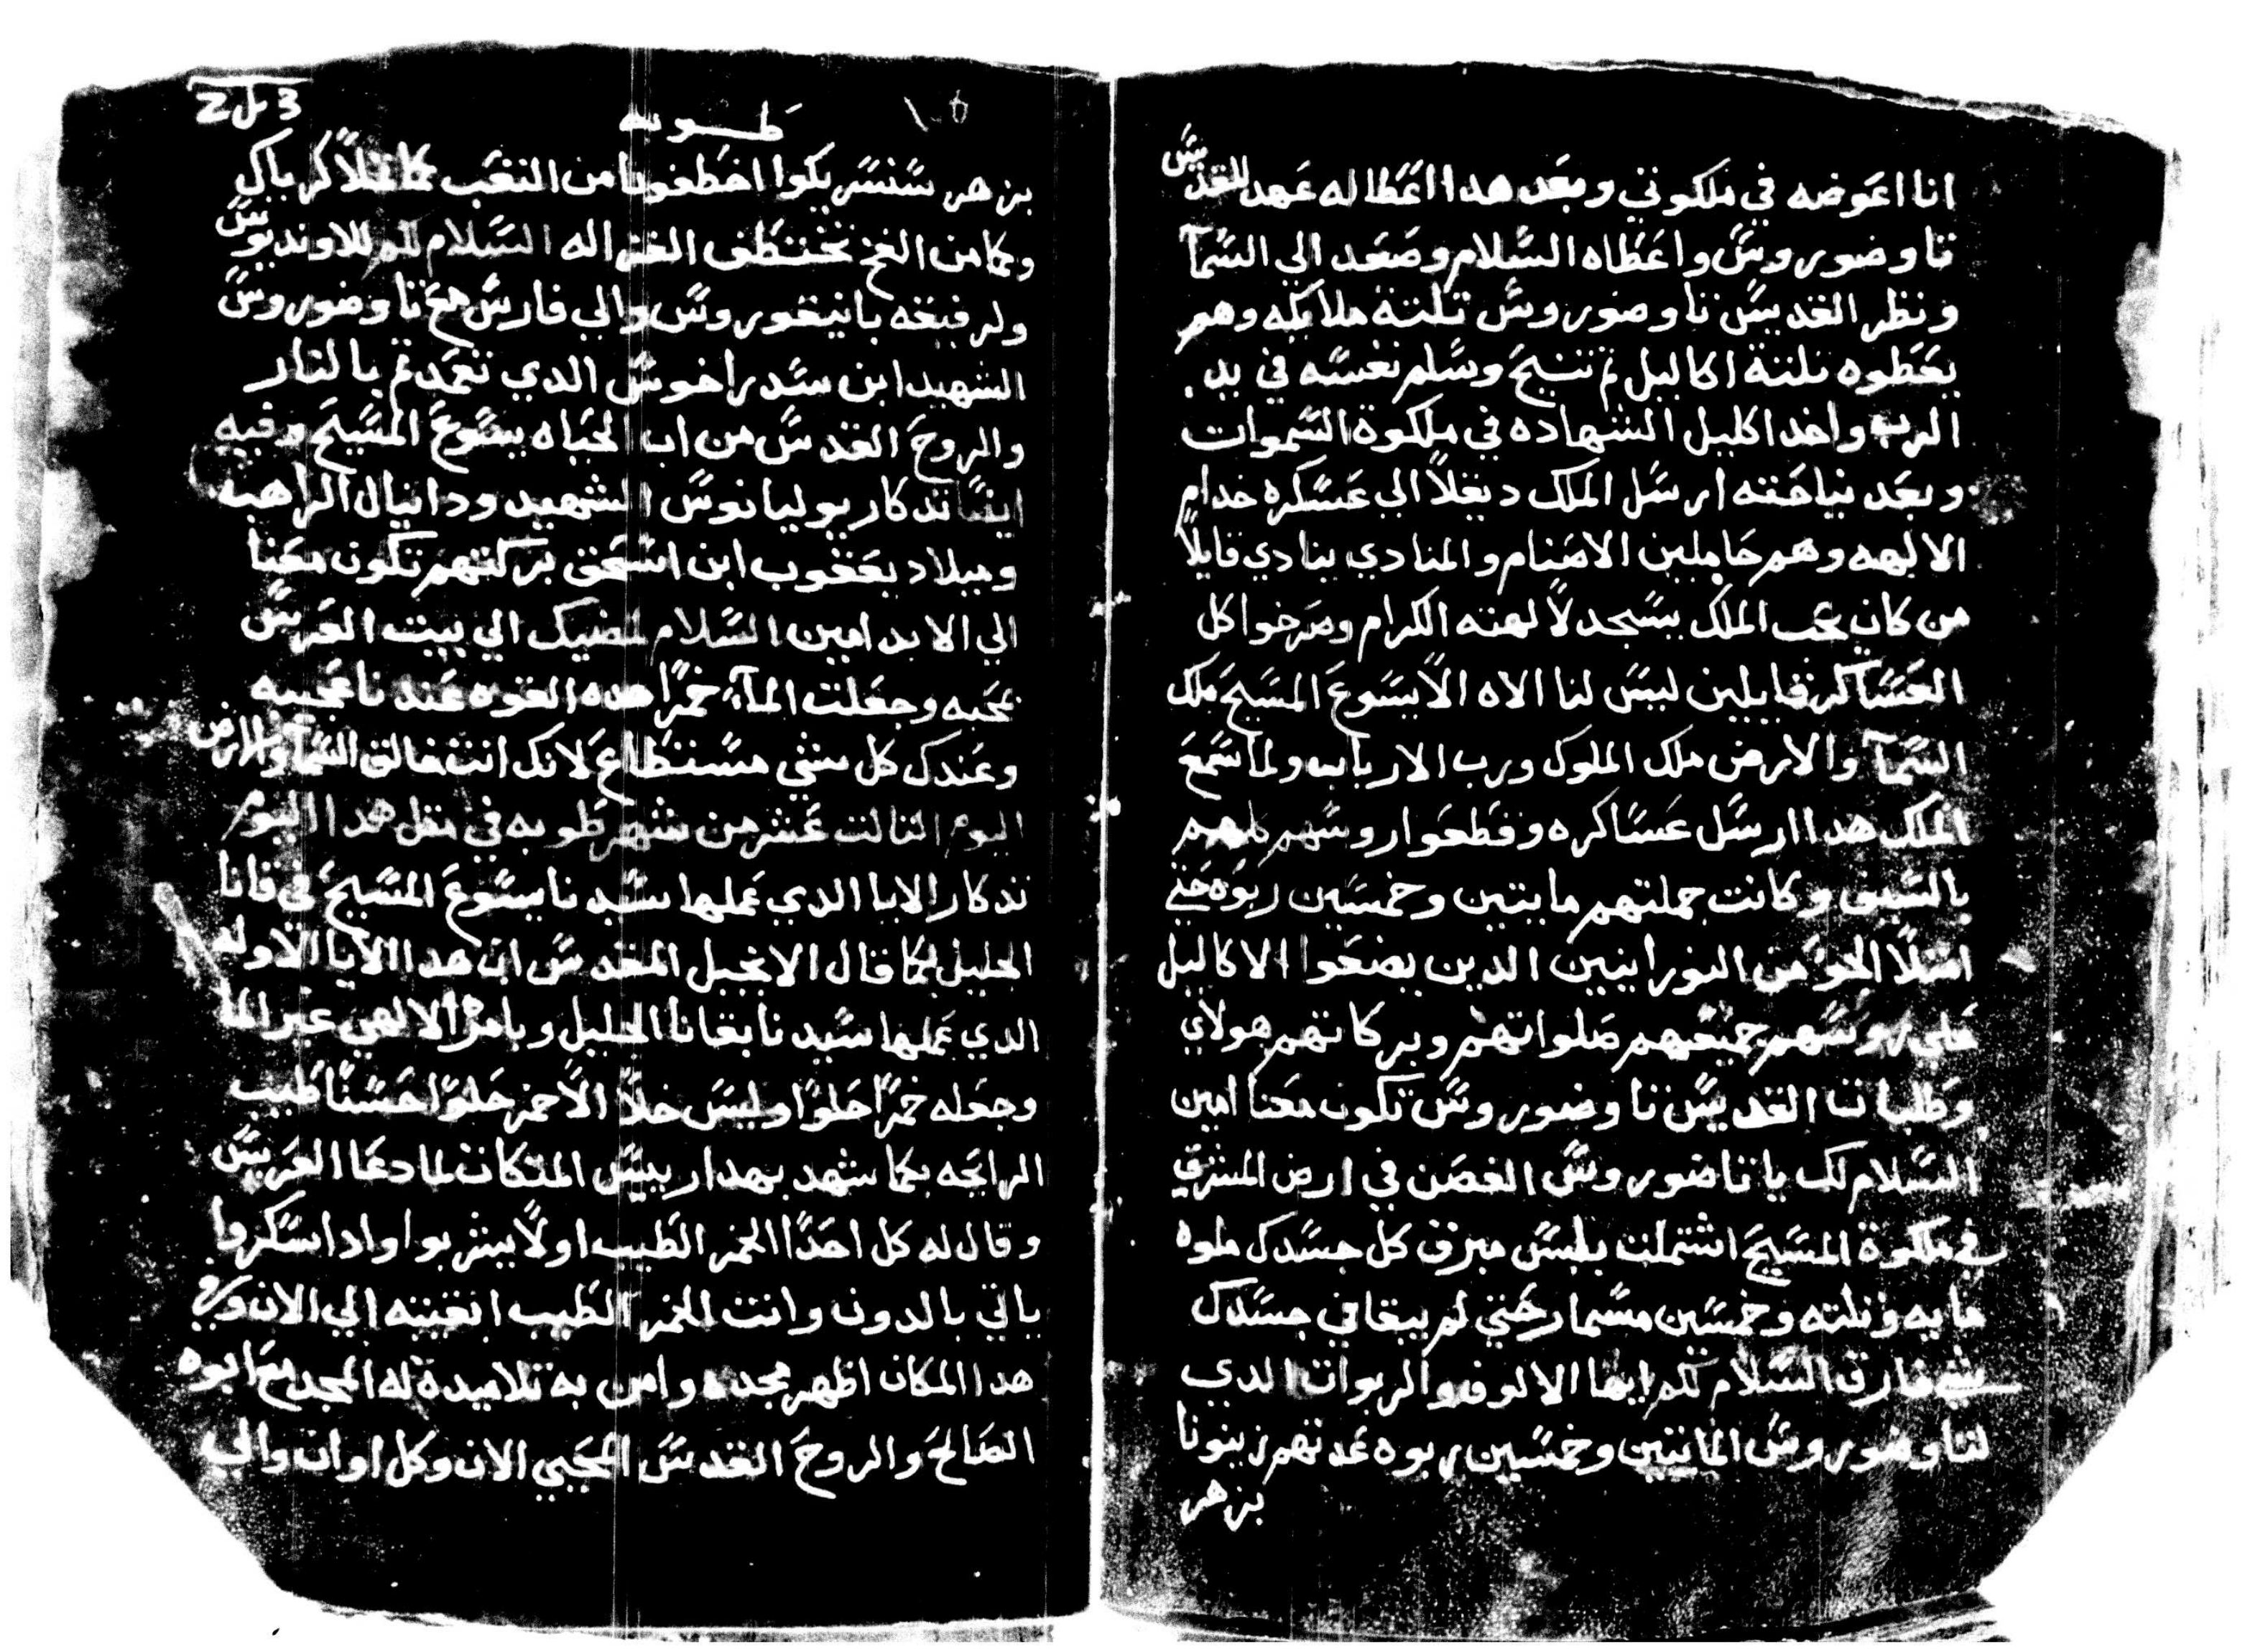 انا اعوضه في ملكوتي وبعد هدا اعطا له عهد للقديس
تاوضوروس واعطاه السلام وصعد الي السمآ
ونظر القديس تاوضوروس تلتة ملايكه وهم
يعطوه تلتة اكاليل تم تنيح وسلم نفسه في يد
الرب واخد اكليل الشهاده في ملكوة السموات
وبعد نياحته ارسل الملك ديقلاً الي عسكره خدام
الالهه وهم حاملين الاصنام والمنادي ينادي قايلاً
من كان يحب الملك يسجد لالهته الكرام وصرخوا كل
العساكر قايلين ليس لنا الاه الا يسوع المسيح ملك
السمآ والارض ملك الملوك ورب الارباب ولما سمع
الملك هدا ارسل عساكره وقطعوا روسهم كلهم
بالسيف وكانت جملتهم مايتين وخمسين ربوه حتي
امتلا الجو من النورانيين الدين يضعوا الاكاليل
علي روسهم جميعهم صلواتهم وبركاتهم هولاي
وطلبات القديس تاوضوروس تكون معنا امين
السلام لك يا تاضوروس الغصن في ارض المشرق
في ملكوة المسيح اشتملت بلبس مبرق كل جسدك ملوه
مايه وتلته وخمسين مسمار حتي لم يبقا في جسدك
شي فارق السلام لكم ايها الالوف والربوات الدي
لتاوضوروس المايتين وخمسين ربوه عدتهم زينونا
بزهر
طوبه
بزهر سنسريكوا اخطفونا من التعب كما تخلا كرباكي
وكما من الفخ تختطف الغزاله السلام لكم للاونديوس
ولرفيقه بانيقوروس والي فارس مع تاوضوروس
الشهيد ابن سدراخوس الدي تعمد تم بالنار
والروح القدس من اب الحياه يسوع المسيح وفيه
ايضاً تدكار يوليانوس الشهيد ودانيال الراهب
وميلاد يعقوب ابن اسحق بركتهم تكون معنا
الي الابد امين السلام لمضيك الي بيت العرس
بمحبه وجعلت المآء خمراً هده القوه عندنا عجيبه
وعندك كل شي مستطاع لانك انت خالق السما والارض
اليوم التالت عشر من شهر طوبه في متل هدا اليوم
تدكار الايا الدي عملها سيدنا يسوع المسيح في قانا
الجليل كما قال الانجيل المقدس ان هدا الايا الاوله
الدي عملها سيدنا بقانا الجليل وبامره الالهي غير الما
وجعله خمراً حلواً وليس خلاً الاخمر حلواً حسناً طيب
الرايحه كما شهد بهدا رييس المتكات لما دعا العريس
وقال له كل احداً الخمر الطيب اولاً يشربوا وادا سكروا
ياتي بالدون وانت الخمر الطيب ابقيته الي الان وفي
هدا المكان اظهر مجده وامن به تلاميدة له المجد مع ابوه
الصالح والروح القدس المحيي الان وكل اوان والي